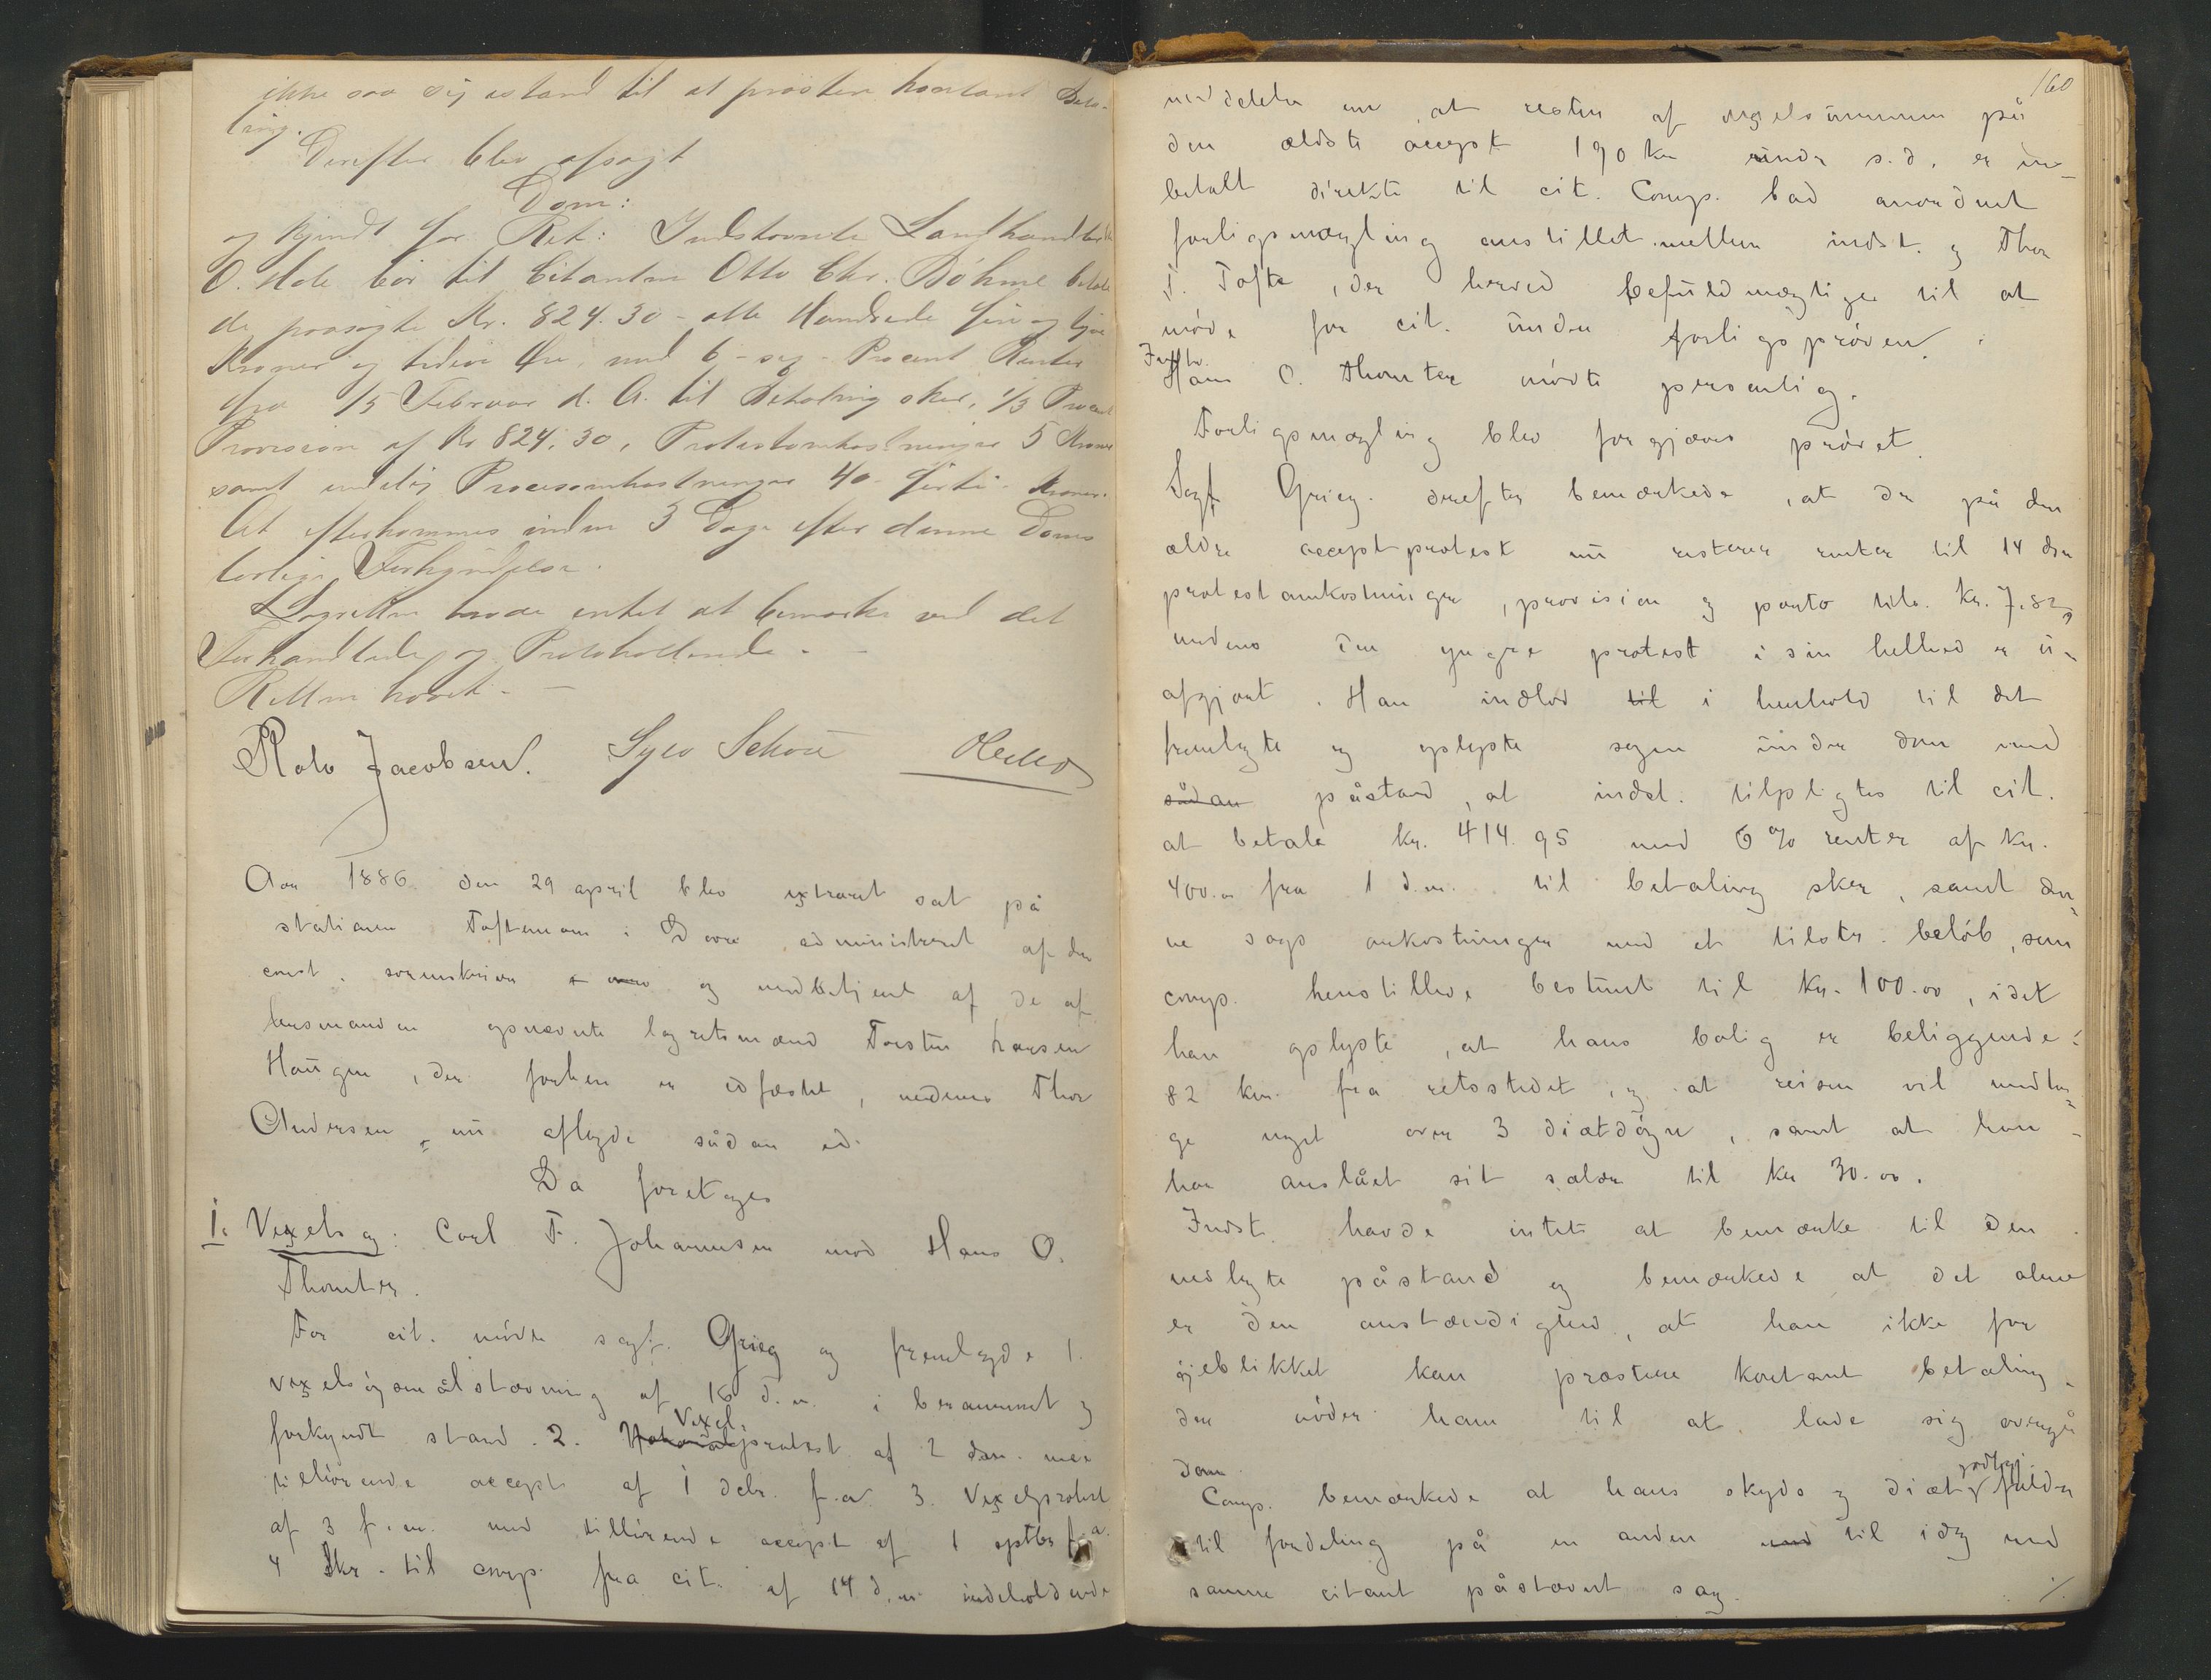 ikke saa sig istand til at præstere kontant Beta-
ling.
Derefter blev afsagt
Dom:
og kjendt for Ret: Indstevnte Landhandler
O. Hole bør til Citanten Otto Chr. Böhme betale
de paasagte Kr. 824.30 - otte Hundrede fire og tyve
Kroner og tredive Øre, med 6 - sex - Procent Renter
fra 1/5 Februar d. A. til Betaling sker, 1/3 Procent
Provision af Kr 824.30, Protestomkostninger 5 Kroner
samt endelig Procesomkostninger 40 - firti - Kroner.
At efterkommes inden 3 Dage efter denne Doms
lovlige Forkyndelse.
Lagretten havde intet at bemærke ved det
Forhandlede og Protokollerede. -
Retten hævet. -
Rolv Jacobsen. Syver Schou
Aar 1886 den 29 april blev extraret sat på
stationen Toftemoen i Dovre administreret af den
const. sorenskriver og medbetjent af de af
lensmanden opnævnte lagretsmænd Torsten Larsen
Haugen, der forhen er edfæstet, medens Thor
Andersen nu aflagde sådan ed.
Da foretoges
1. Vexelsag: Carl F. Johannesen mod Hans O.
Thomter.
For cit. møder sagf. Grieg og fremlagde 1.
vexelsøgsmålstævning af 16 d.m. i berammet og
forkyndt stand. 2. Notarial Vexelprotest af 2 dsm. med
tilhørende accept af 1 debr. f.a. 3. Vexelprotest
af 3 f.m. med tilhørende accept af 1 f.a.
4 Skr. til comp. fra cit. af 14 d.m. indeholdende
160
meddelelse om, at resten af vexelsummen på
den ældste accept 190 kr under s.d. er ind-
betalt direkte til cit. Comp. bad anordnet
forligsmægling anstillet mellem indst. og Thor
T. Tofte, der herved befuldmægtiges til at
møde for cit. under forligsprøven.
Indstv.
Hans O. Thomter mødte personlig.
Forligsmægling blev forgjæves prøvet.
Sagf. Grieg derefter bemærkede, at der på den
ældre acceptprotest nu resterer renter til 14 dsm
protestomkostninger, provision og porto tils. Kr. 7.82,
medens den yngre protest i sin helhed er u-
afgjort. Han indlod til i henhold til det
fremlagte og oplyste sagen under dom med
sådan påstand, at indst. tilpligtes til cit.
at betale kr. 414.95 med 6 % renter af Kr.
400.00 fra 1 d.m. til betaling sker, samt den-
ne sags omkostninger med et tilstr. beløb, som
comp. henstillede bestemt til Kr. 100.00, idet
han oplyste, at hans bolig er beliggende
82 km. fra retsstedet, og at reisen vil medta-
ge noget over 3 diætdøgn, samt at han
har anslået sit salær til kr 30.00.
Indst. havde intet at bemærke til den
nedlagte påstand og bemærkede at det alene
er den omstændighed, at han ikke for
øjeblikket kan præstere kontant betaling,
der nøder ham til at lade sig overgå
dom.
Comp. bemærkede at hans skyds og diætgodtgj. falder
til fordeling på en anden med til idag med
samme citant påstævnt sag.